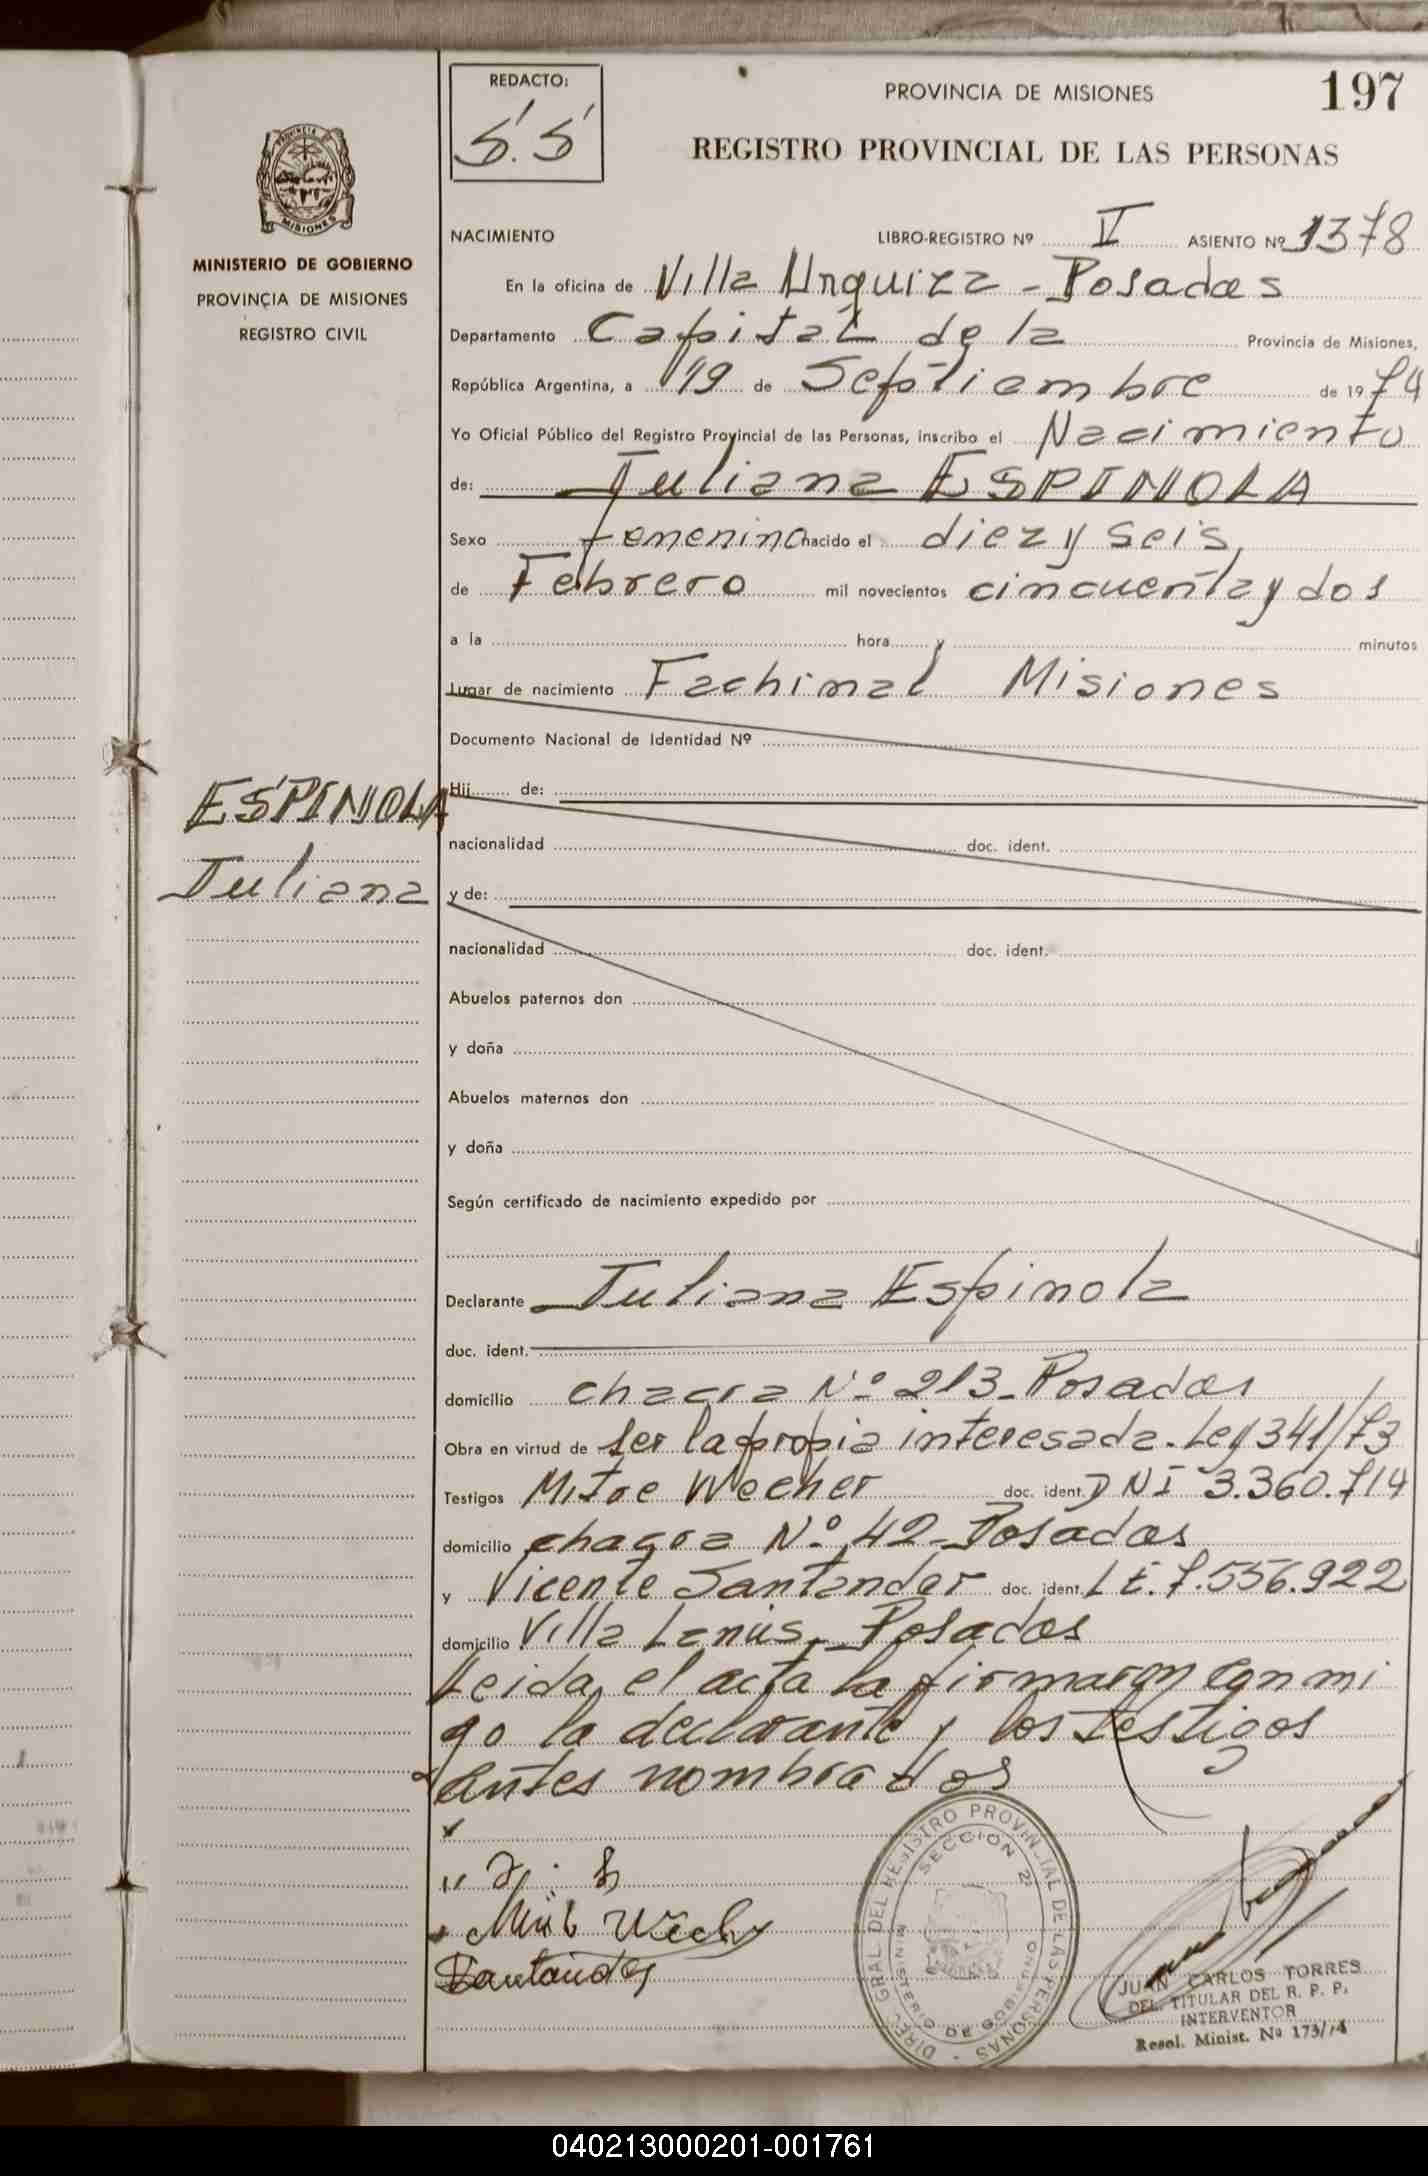 REDACTO:
S.S
PROVINCIA DE MISIONES
197
REGISTRO PROVINCIAL DE LAS PERSONAS
PROVINCIA DE
MISIONES
MINISTERIO DE GOBIERNO
PROVINCIA DE MISIONES
REGISTRO CIVIL
NACIMIENTO LIBRO-REGISTRO Nº V ASIENTO Nº 1378
En la oficina de Villa Urquiza - Posadas
Departamento Capital de la Provincia de Misiones,
República Argentina, a 19 de Septiembre de 1974
Yo Oficial Público del Registro Provincial de las Personas, inscribo el Nacimiento
de: Juliana ESPINOLA
Sexo femenino nacido el diez y seis
de Febrero mil novecientos cincuenta y dos
a la hora y minutos
Lugar de nacimiento Fachinal Misiones
Documento Nacional de Identidad Nº
ESPINOLA
Juliana
Hij de:
nacionalidad doc. ident.
y de:
nacionalidad doc. ident.
Abuelos paternos don
y doña
Abuelos maternos don
y doña
Según certificado de nacimiento expedido por
Declarante Juliana Espinola
doc. ident.
domicilio chacra Nº 213 - Posadas
Obra en virtud de ser la propia interesada. Ley 341/73
Testigos Mitre Wecher doc. ident. DNI 3.360.714
domicilio chacra Nº 42 - Posadas
y Vicente Santander doc. ident. L E. 7.556.922
domicilio Villa Lanús - Posadas
Leida el acta la firmaron conmi
go la declarante y los testigos
antes nombrados
Santander
DIREC. GRAL. DEL REGISTRO PROVINCIAL DE LAS PERSONAS
SECCION 2ª
MINISTERIO DE GOBIERNO
JUAN CARLOS TORRES
DEL. TITULAR DEL R. P. P.
INTERVENTOR
Resol. Minist. Nº 173/74
040213000201-001761